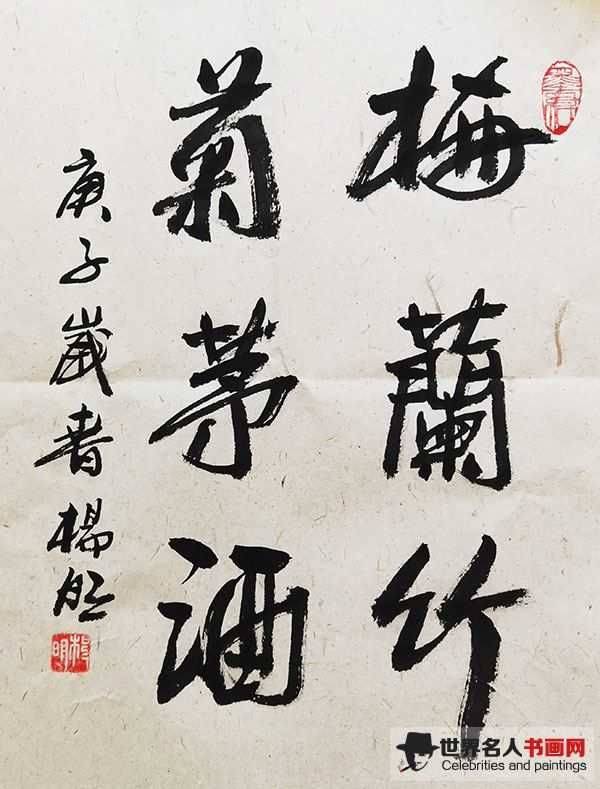 梅蘭竹
菊茅酒
庚子歲書楊明
楊明
世界名人书画网
Celebrities and paintings